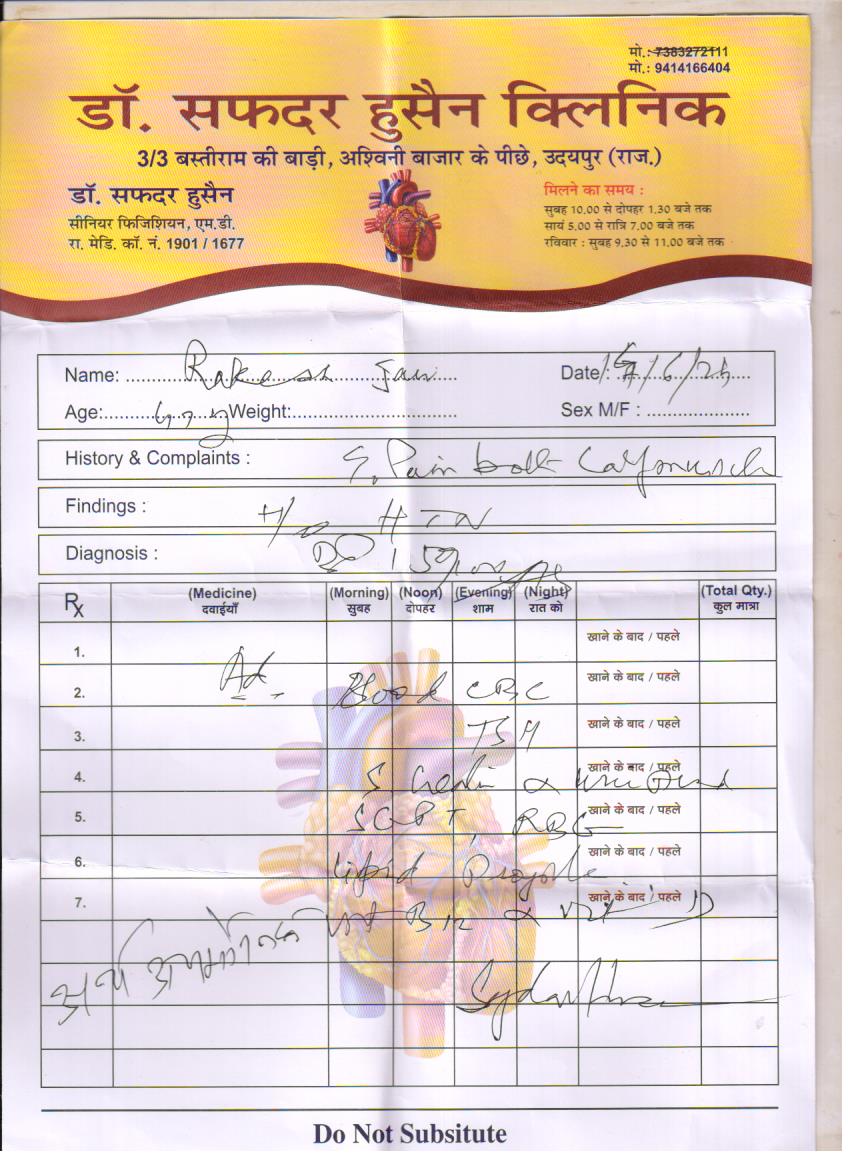 मो.: 7383272111
मो.: 9414166404
डॉ. सफदर हुसैन क्लिनिक
3/3 बस्तीराम की बाड़ी, अश्विनी बाजार के पीछे, उदयपुर (राज.)
डॉ. सफदर हुसैन
सीनियर फिजिशियन, एम.डी.
रा. मेडि. कॉ. नं. 1901 / 1677
मिलने का समय :
सुबह 10.00 से दोपहर 1.30 बजे तक
सायं 5.00 से रात्रि 7.00 बजे तक
रविवार : सुबह 9.30 से 11.00 बजे तक
Name: Rakesh Jain Date: /6/25
Age: Weight: Sex M/F :
History & Complaints : Pain both
Findings : HTN
Diagnosis :
Rx (Medicine) (Morning) (Noon) (Evening) (Night) (Total Qty.)
दवाईयाँ सुबह दोपहर शाम रात को कुल मात्रा
1. खाने के बाद / पहले
2. Ad. Blood CBC खाने के बाद / पहले
3. TSH खाने के बाद / पहले
4. S खाने के बाद / पहले
5. SGPT, RBG खाने के बाद / पहले
6. Lipid Profile खाने के बाद / पहले
7. खाने के बाद / पहले
vit B12 & vit D
Do Not Subsitute